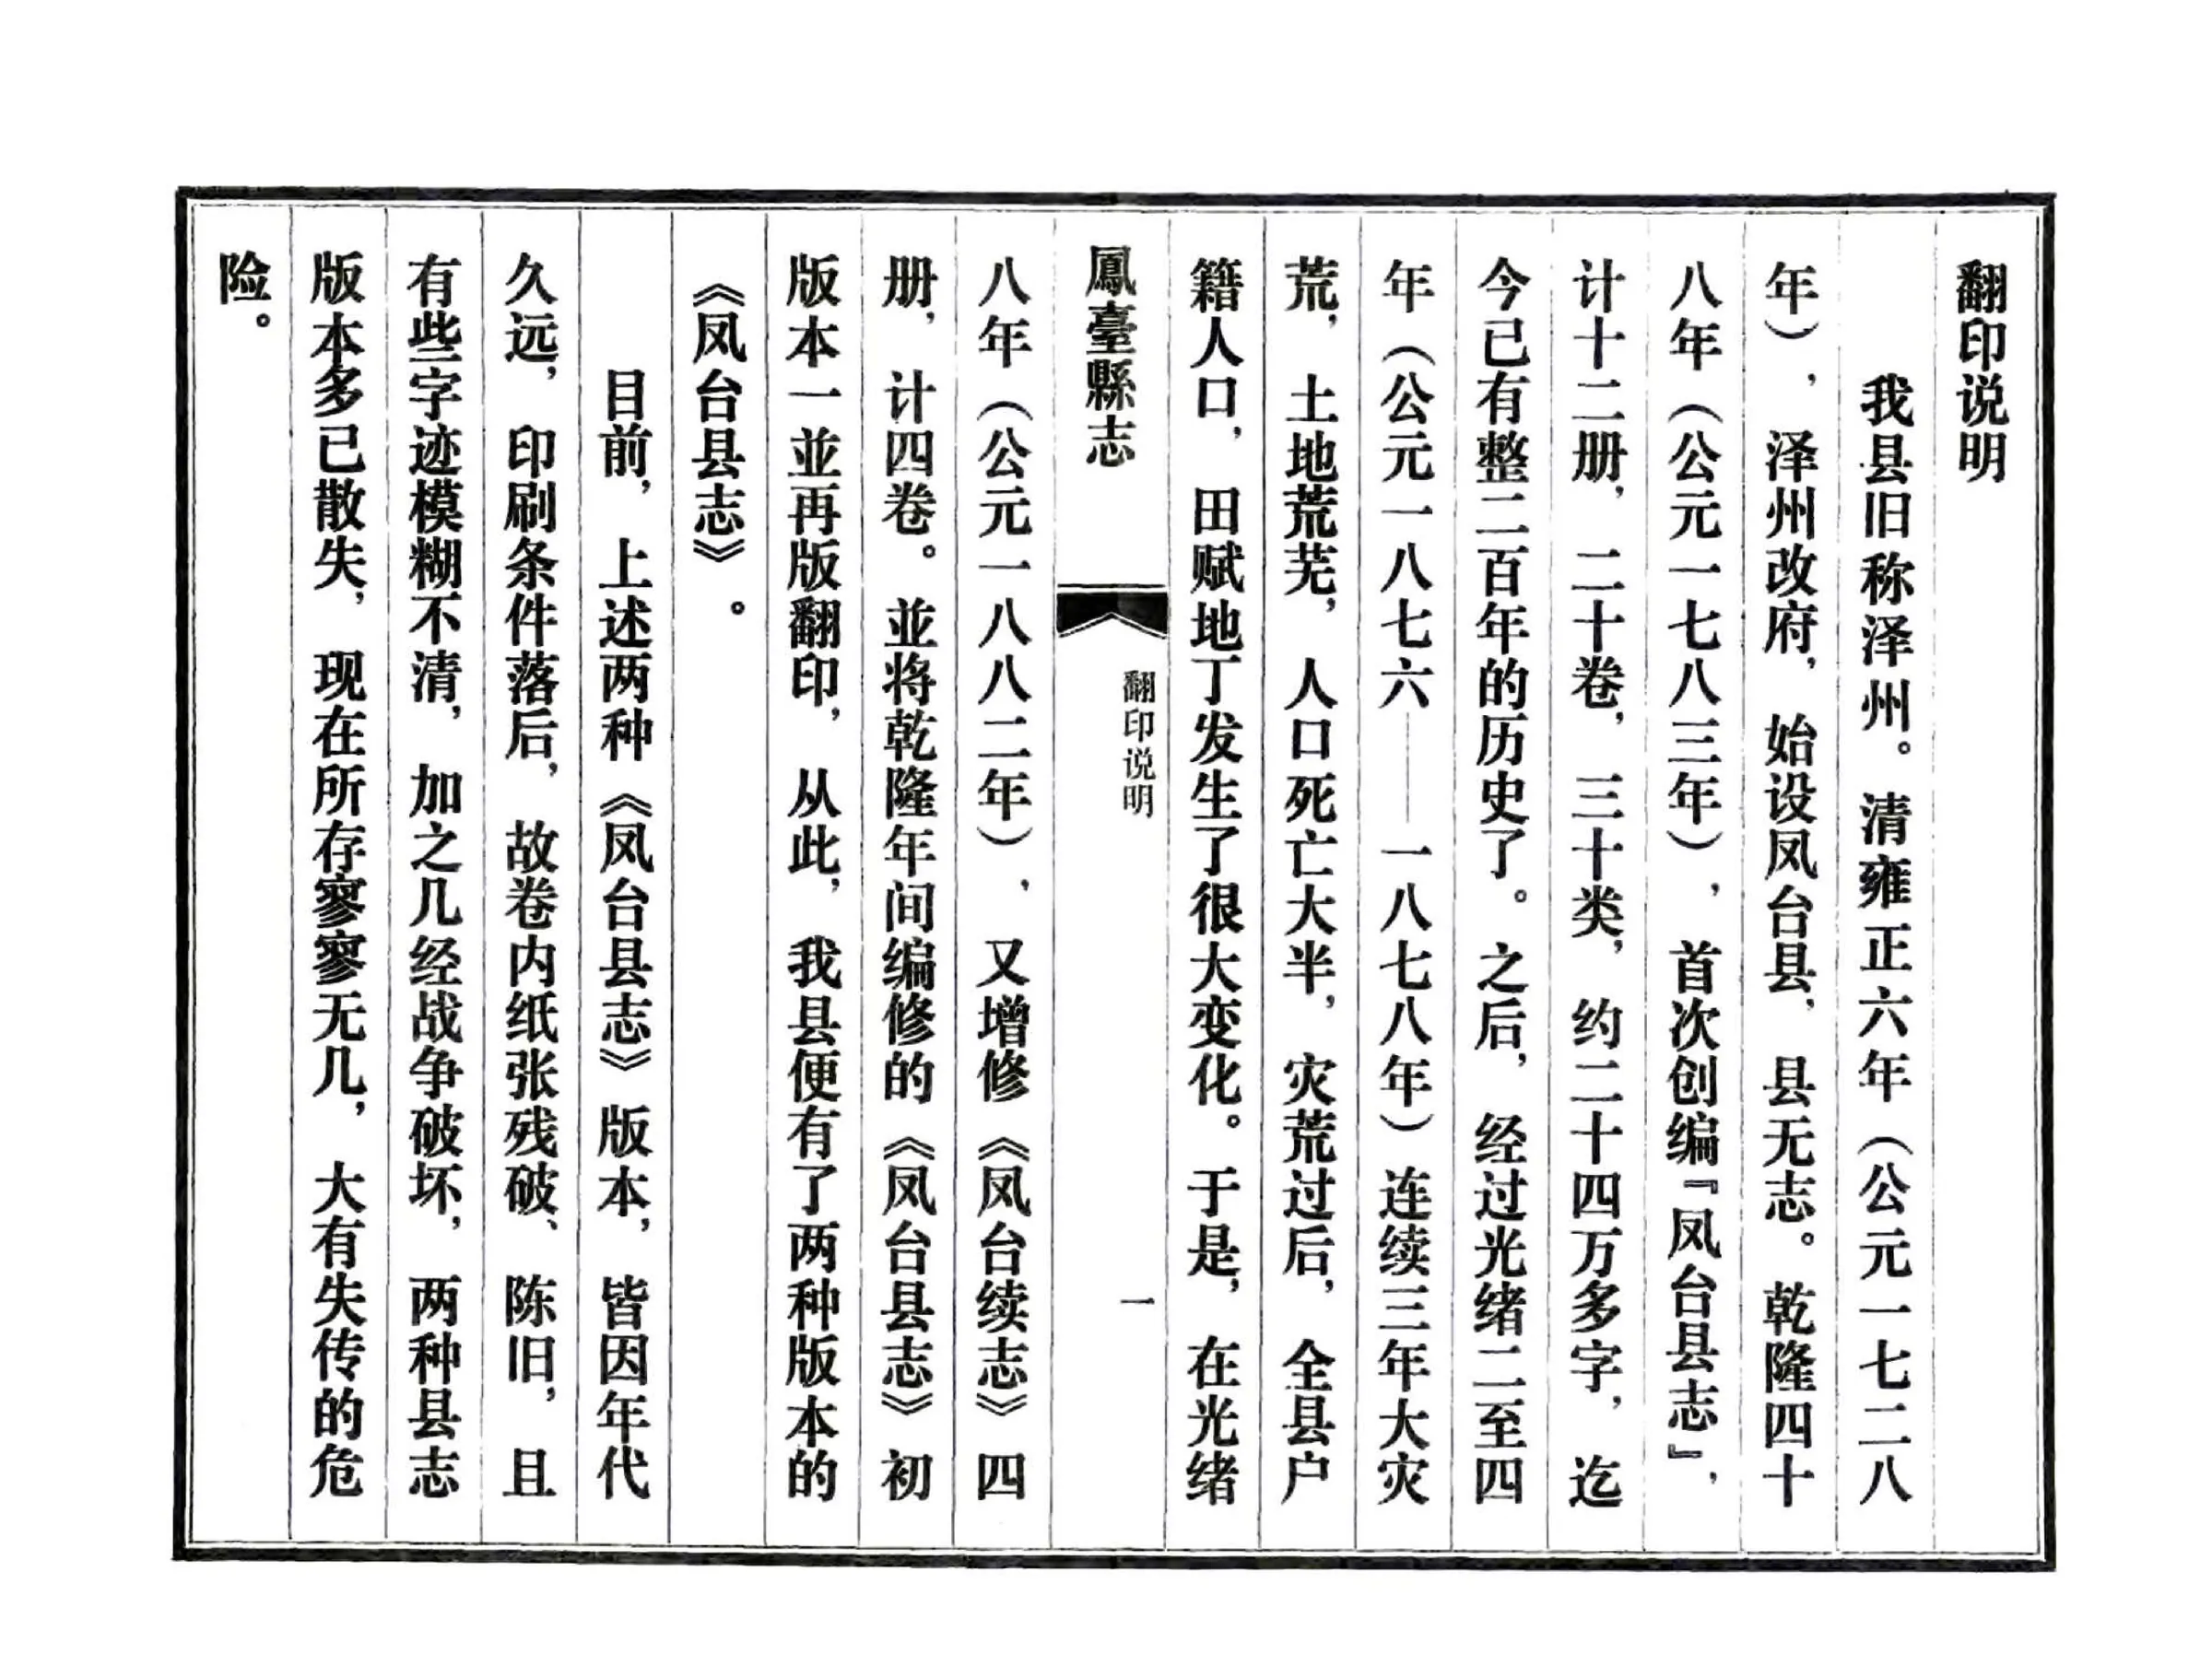 翻印说明
我县旧称泽州。清雍正六年（公元一七二八
年），泽州改府，始设凤台县，县无志。乾隆四十
八年（公元一七八三年），首次创编『凤台县志』，
计十二册，二十卷，三十类，约二十四万多字，迄
今已有整二百年的历史了。之后，经过光绪二至四
年（公元一八七六——一八七八年）连续三年大灾
荒，土地荒芜，人口死亡大半，灾荒过后，全县户
籍人口，田赋地丁发生了很大变化。于是，在光绪
鳳臺縣志
翻印说明
一
八年（公元一八八二年），又增修《凤台续志》四
册，计四卷。並将乾隆年间编修的《凤台县志》初
版本一並再版翻印，从此，我县便有了两种版本的
《凤台县志》。
目前，上述两种《凤台县志》版本，皆因年代
久远，印刷条件落后，故卷内纸张残破、陈旧，且
有些字迹模糊不清，加之几经战争破坏，两种县志
版本多已散失，现在所存寥寥无几，大有失传的危
险。